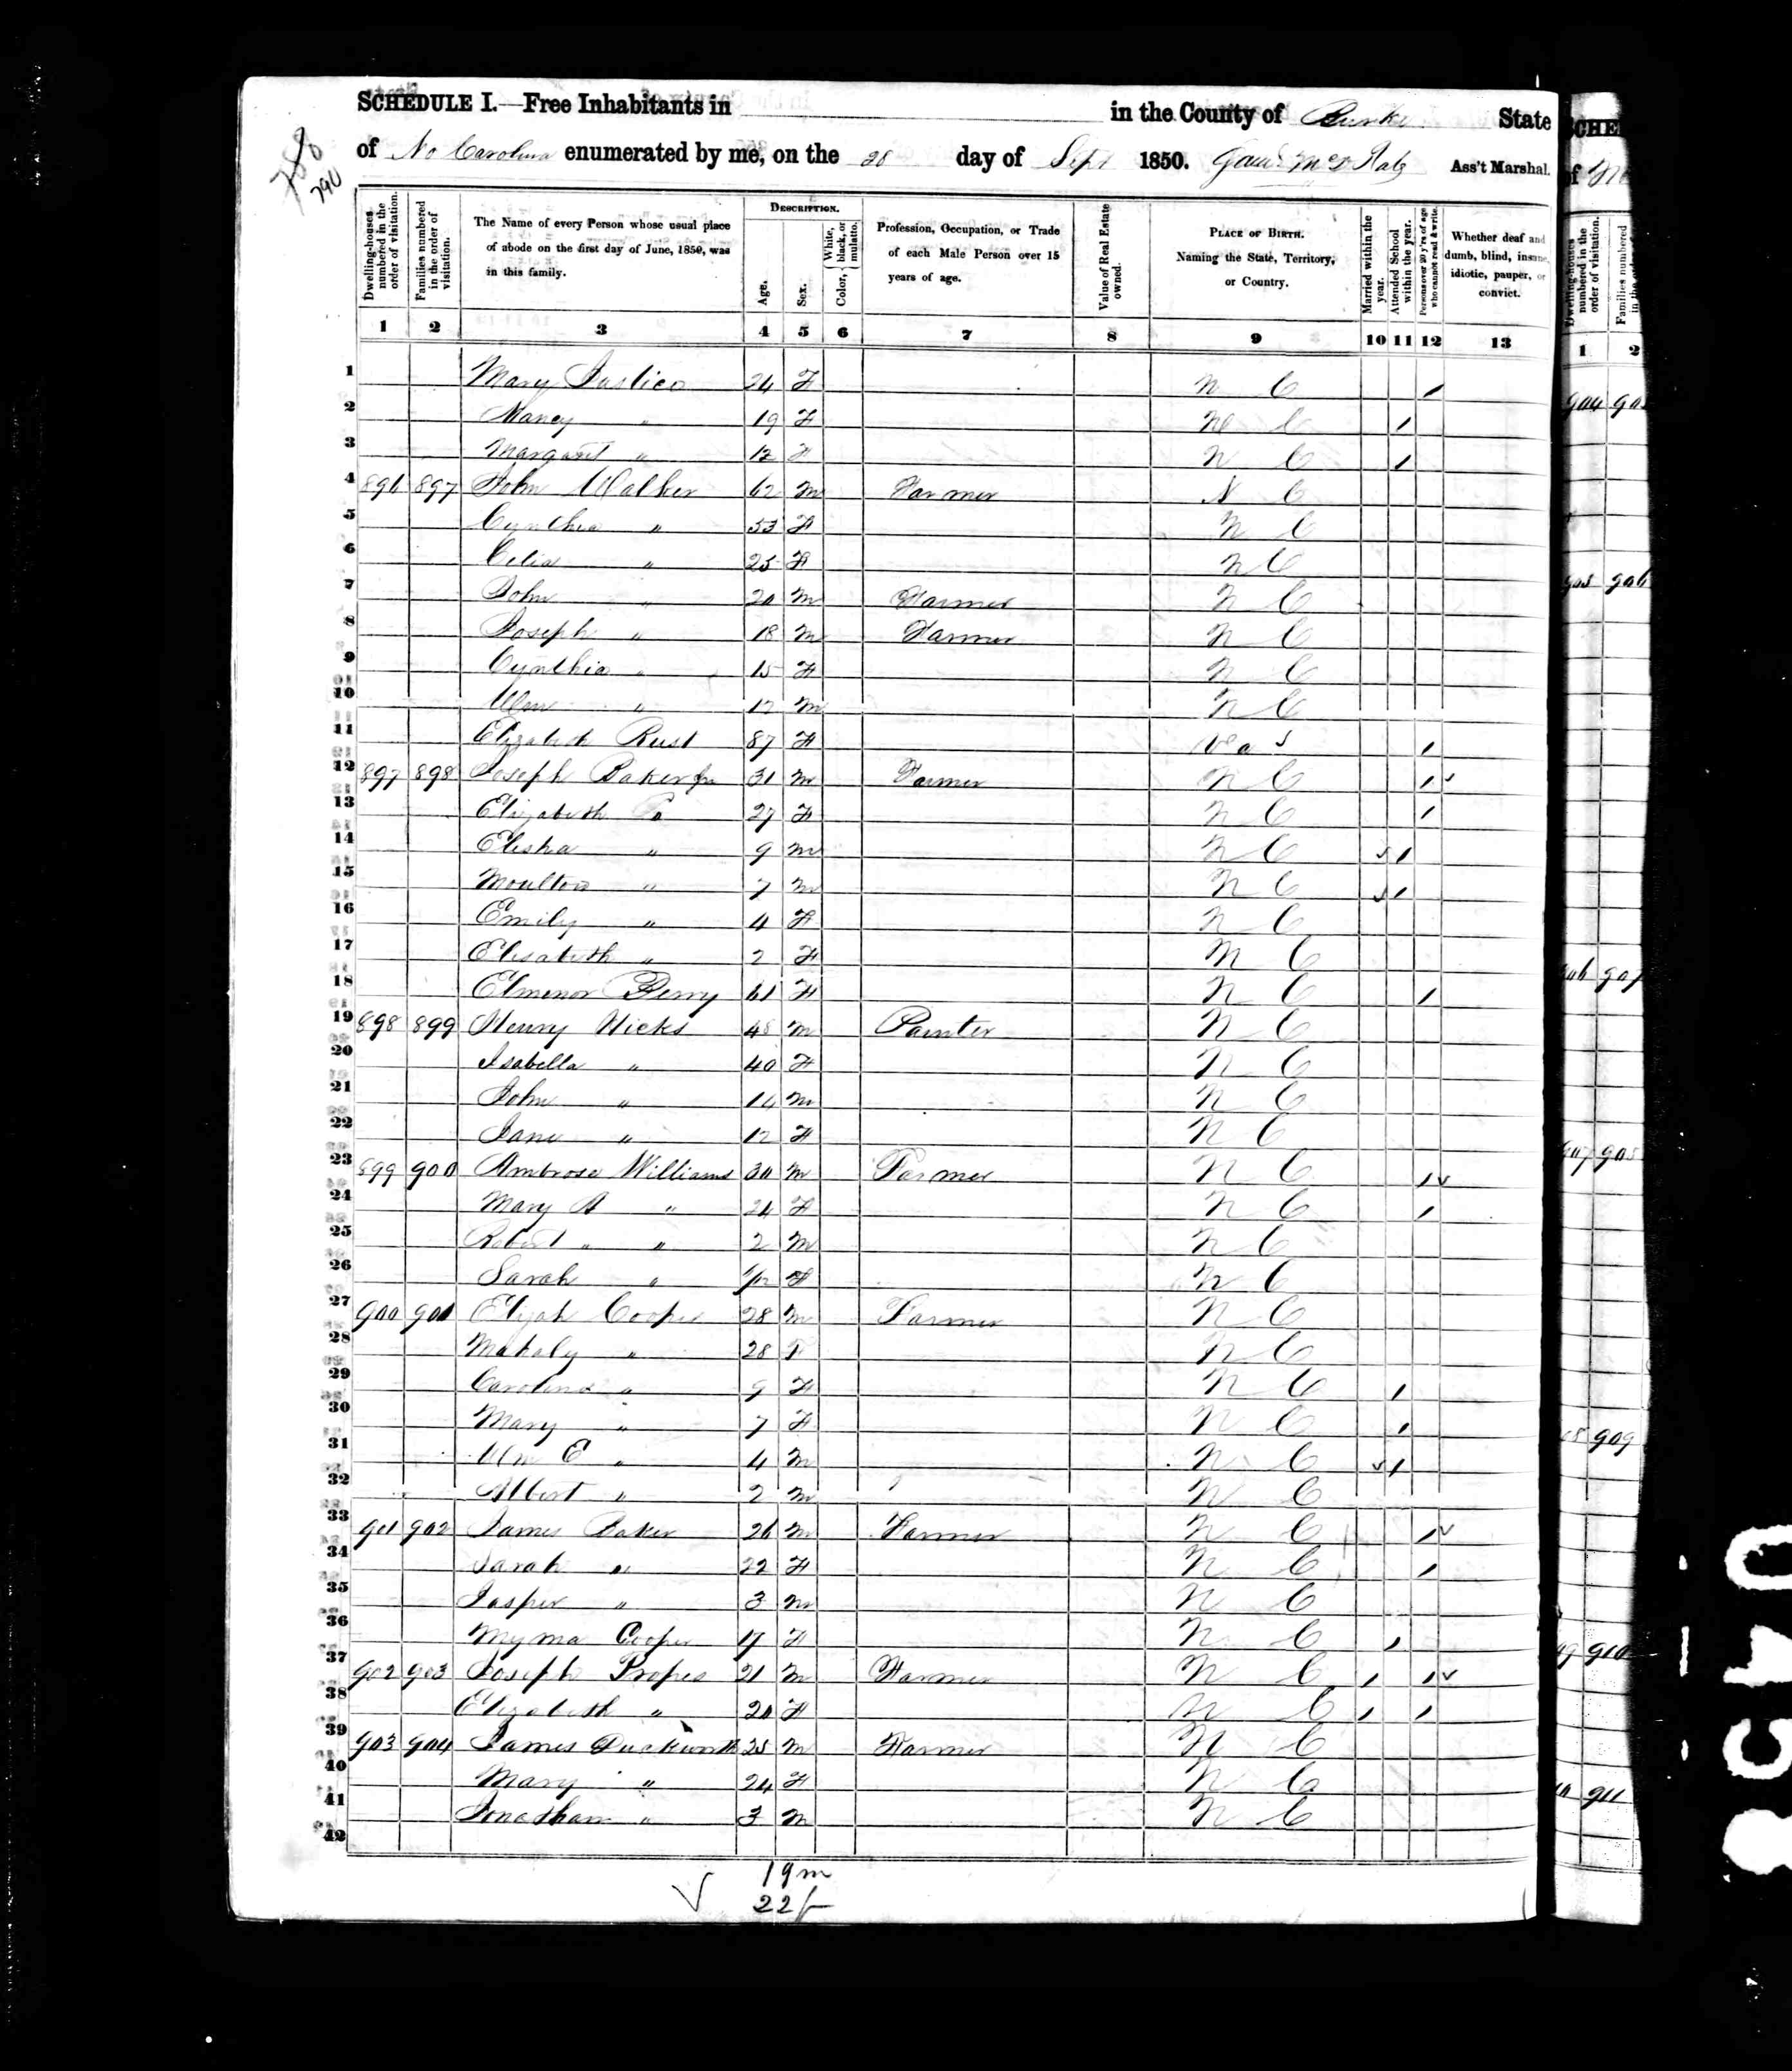 SCHEDULE I.—Free Inhabitants in in the County of Burke State
of No Carolina enumerated by me, on the 28 day of Sept 1850. Ass't Marshal.
788
790
Dwelling-houses numbered in the order of visitation.
Families numbered in the order of visitation.
The Name of every Person whose usual place of abode on the first day of June, 1850, was in this family.
DESCRIPTION.
Age.
Sex.
Color, { White, black, or mulatto.
Profession, Occupation, or Trade of each Male Person over 15 years of age.
Value of Real Estate owned.
PLACE OF BIRTH. Naming the State, Territory, or Country.
Married within the year.
Attended School within the year.
Persons over 20 y'rs of age who cannot read & write.
Whether deaf and dumb, blind, insane, idiotic, pauper, or convict.
1 2 3 4 5 6 7 8 9 10 11 12 13
1 Mary Justice 24 F N C /
2 Nancy " 19 F N C /
3 Margaret " 12 F N C /
4 896 897 John Walker 62 M Farmer N C
5 Cynthia " 53 F N C
6 Celia " 25 F N C
7 John " 20 M Farmer N C
8 Joseph " 18 M Farmer N C
9 Cynthia " 15 F N C
10 Wm " 12 M N C
11 Elizabeth Rust 87 F /
12 897 898 Joseph Baker Jr 31 M Farmer N C / ✓
13 Elizabeth 27 F N C /
14 Elisha " 9 M N C ✓ /
15 Moulton " 7 M N C ✓ /
16 Emily " 4 F N C
17 Elisabeth " 2 F N C
18 Elmenor Berry 61 F N C /
19 898 899 Henry Hicks 48 M Painter N C
20 Isabella " 40 F N C
21 John " 14 M N C
22 Jane " 12 F N C
23 899 900 Ambrose Williams 30 M Farmer N C / ✓
24 Mary A " 24 F N C /
25 Robert " " 2 M N C
26 Sarah " F N C
27 900 901 Elijah Cooper 28 M Farmer N C
28 Mahaly " 28 F N C
29 Caroline " 9 F N C /
30 Mary " 7 F N C /
31 Wm E " 4 M N C ✓ /
32 Albert " 2 M N C
33 901 902 James Baker 26 M Farmer N C / ✓
34 Sarah " 22 F N C /
35 Jasper " 3 M N C
36 Myma Cooper 17 F N C /
37 902 903 Joseph Propes 21 M Farmer N C / / ✓
38 Elizabeth " 20 F N C / /
39 903 904 James Duckworth 25 M Farmer N C
40 Mary " 24 F N C
41 Jonathan " 3 M N C
42
✓ 19 m
22 f
SCHE
of
Dwelling-houses numbered in the order of visitation.
Families numbered
1 2
904 905
905 906
906 907
907 908
909
910
911